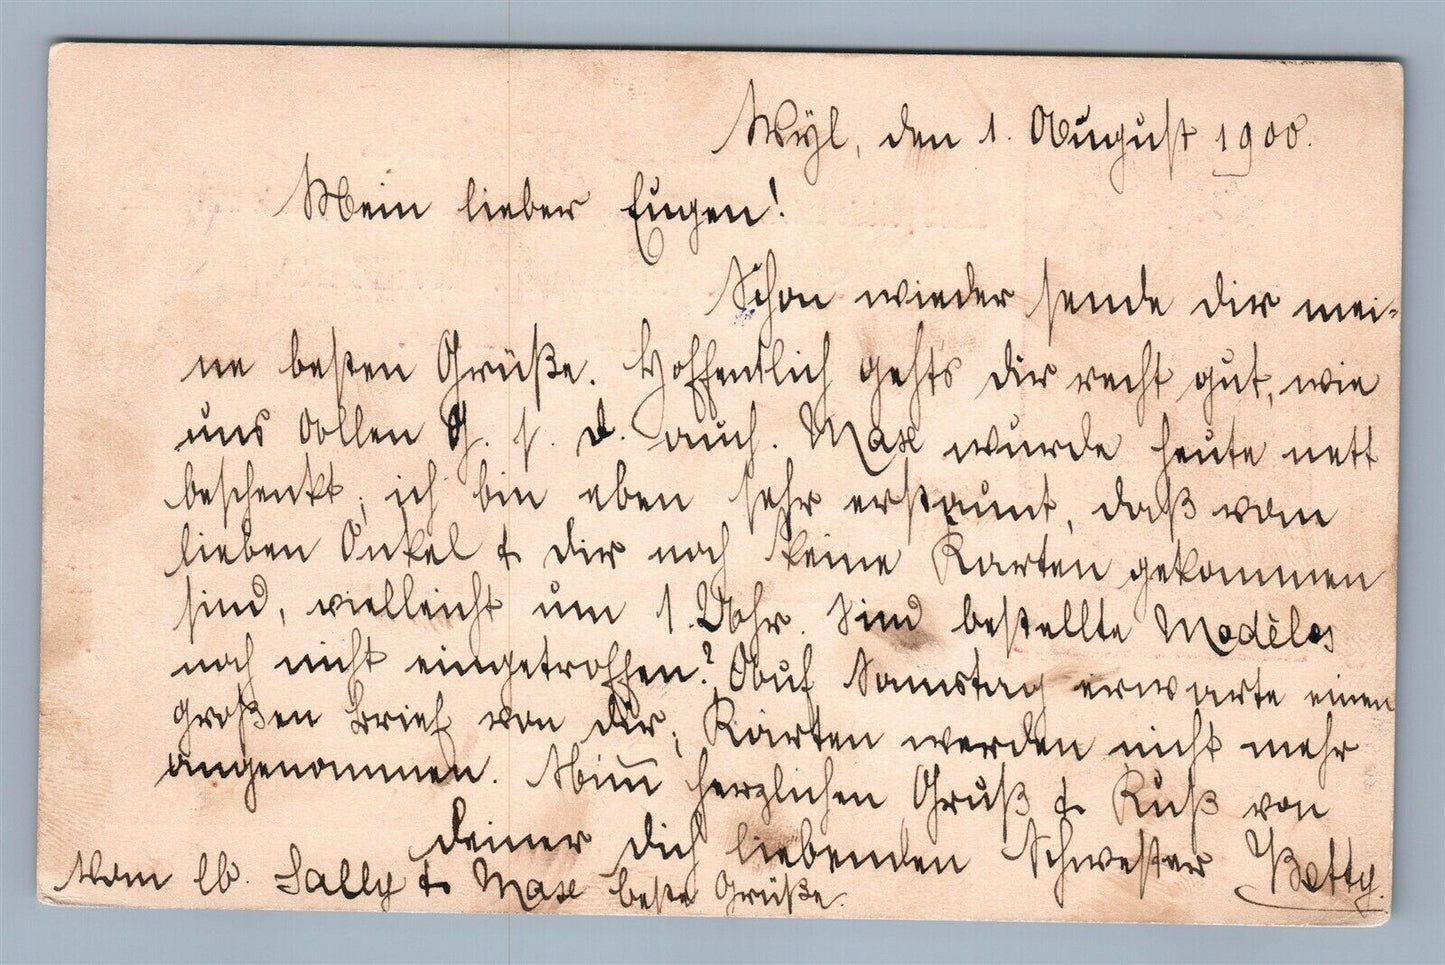 Wÿl, den 1. August 1900.
Mein lieber Eugen!
Schon wieder sende dir mei-
ne besten Grüße. Hoffentlich gehts dir recht gut, wie
uns Vollen G. s. d. auch. Max wurde heute nett
beschenkt; ich bin eben sehr erstaunt, daß vom
lieben Onkel & dir noch keine Karten gekommen
sind, vielleicht um 1 Uhr. Sind bestellte Modèles
noch nicht eingetroffen? Auf Samstag erwarte einen
großen Brief von dir, Karten werden nicht mehr
angenommen. Nim̅ herzlichen Gruß & Kuß von
deiner dich liebenden Schwester Betty.
Vom lb. Sally & Max beste Grüße.